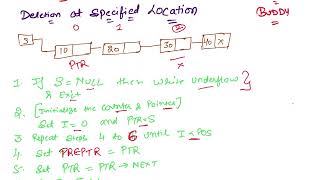 Deletion at Specified Location
BUDDY
0 1 2
S 10 20 30 40 X
PTR X
1. If S = NULL then write underflow
& Exit
2. [Initialize the counter & Pointer]
Set I = 0 and PTR = S
3 Repeat Steps 4 to 6 until I < POS
4. Set PREPTR = PTR
5. Set PTR = PTR → NEXT